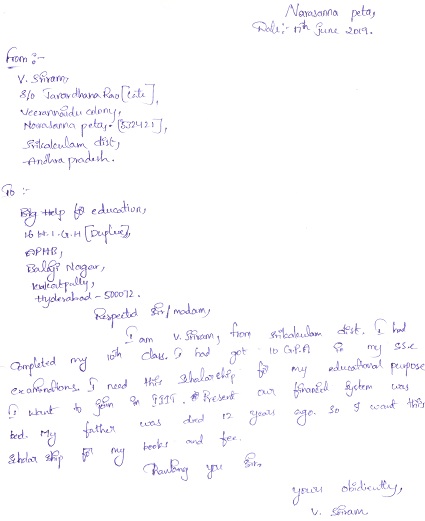 Narasanna peta,
Date:- 17th June 2019.
From :-
V. Sriram,
S/o Janardhana Rao [Late],
Veerannaidu colony,
Narasanna peta, [532421],
Srikakulam dist,
Andhra pradesh.
To :-
Big Help for education,
16 H.I.G.H [Duplex],
APHB,
Balaji Nagar,
kukatpally,
Hyderabad - 500072.
Respected Sir/madam,
I am V. Sriram, from Srikakulam dist. I had
completed my 10th class. I had got 10 G.P.A in my S.S.C
examinations. I need this scholarship for my educational purpose
I want to join in IIIT. Present our financial system was
bad. My father was died 12 years ago. So I want this
scholar ship for my books and fee.
Thanking you Sir,
yours obidiently,
V. Sriram